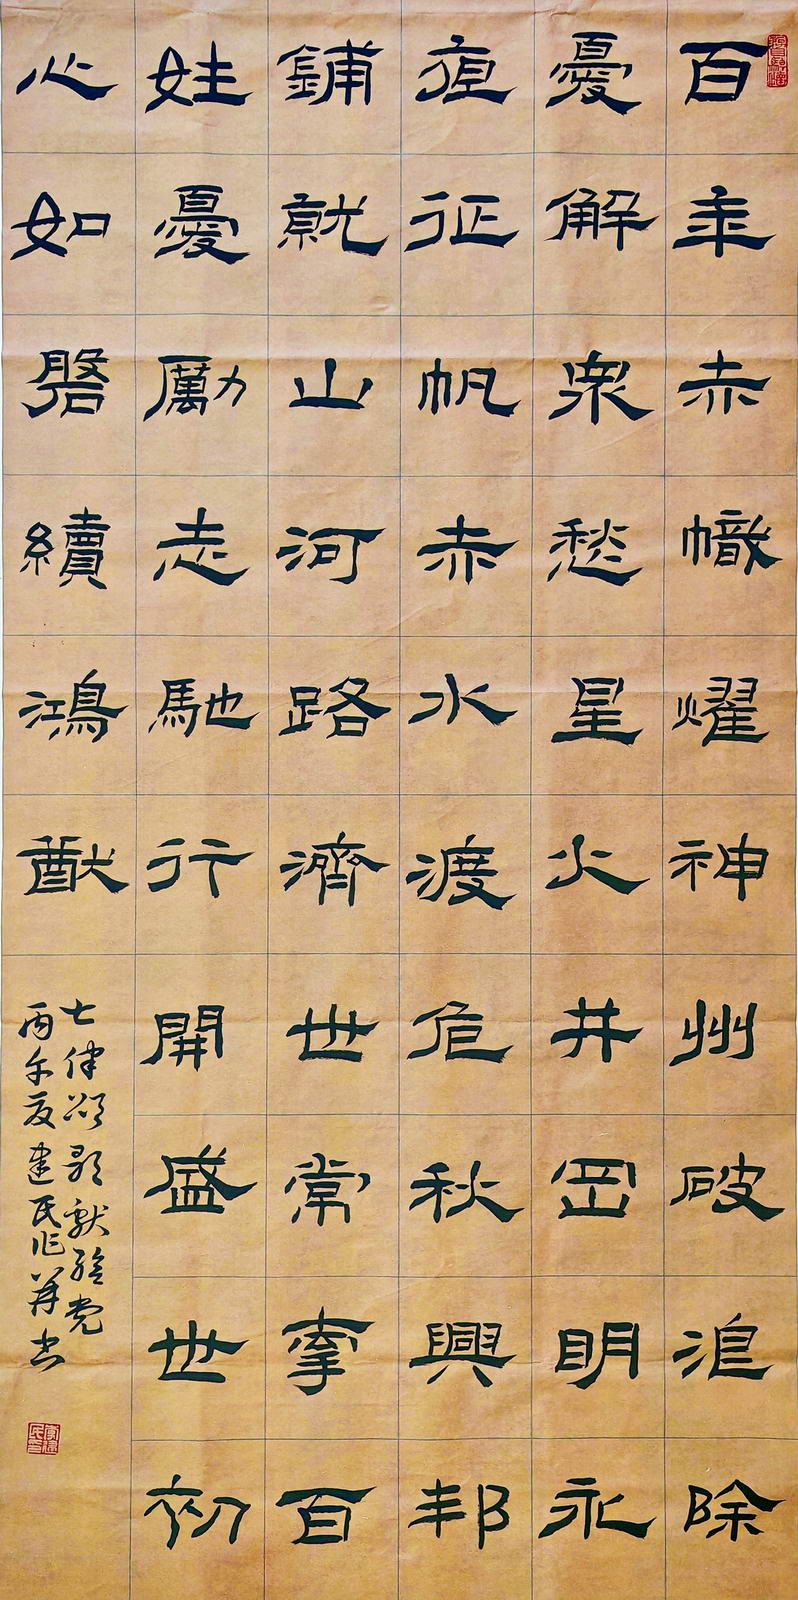 百年赤幟耀神州破浪除
憂解衆愁星火井岡明永
夜征帆赤水渡危秋興邦
鋪就山河路濟世常牽百
姓憂勵志馳行開盛世初
心如磐續鴻猷
七律頌歌献给党
丙午夏建民作并书